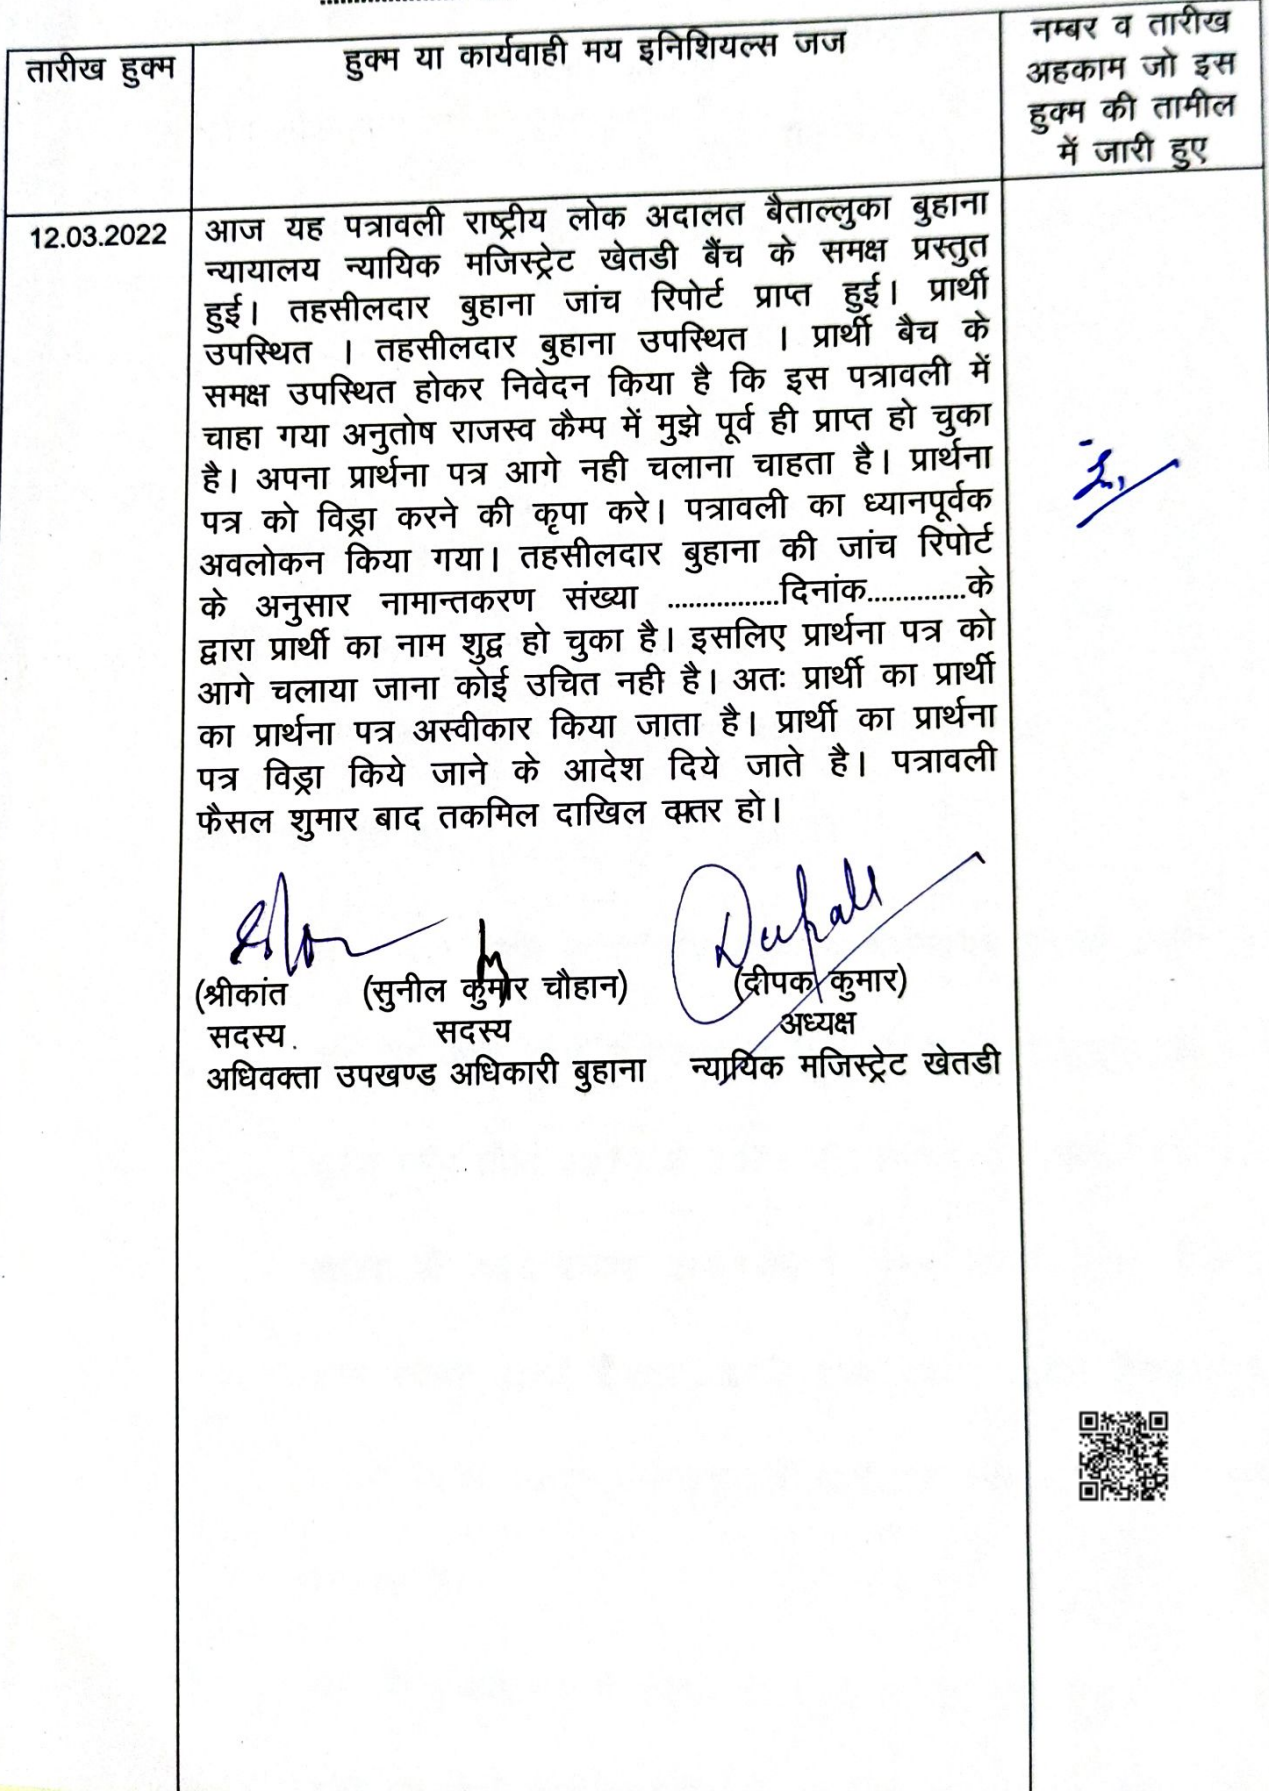 तारीख हुक्म
हुक्म या कार्यवाही मय इनिशियल्स जज
नम्बर व तारीख
अहकाम जो इस
हुक्म की तामील
में जारी हुए
12.03.2022
आज यह पत्रावली राष्ट्रीय लोक अदालत बैताल्लुका बुहाना
न्यायालय न्यायिक मजिस्ट्रेट खेतडी बैंच के समक्ष प्रस्तुत
हुई। तहसीलदार बुहाना जांच रिपोर्ट प्राप्त हुई। प्रार्थी
उपस्थित । तहसीलदार बुहाना उपस्थित । प्रार्थी बैच के
समक्ष उपस्थित होकर निवेदन किया है कि इस पत्रावली में
चाहा गया अनुतोष राजस्व कैम्प में मुझे पूर्व ही प्राप्त हो चुका
है। अपना प्रार्थना पत्र आगे नही चलाना चाहता है। प्रार्थना
पत्र को विड्रा करने की कृपा करे। पत्रावली का ध्यानपूर्वक
अवलोकन किया गया। तहसीलदार बुहाना की जांच रिपोर्ट
के अनुसार नामान्तकरण संख्या ................दिनांक..............के
द्वारा प्रार्थी का नाम शुद्व हो चुका है। इसलिए प्रार्थना पत्र को
आगे चलाया जाना कोई उचित नही है। अतः प्रार्थी का प्रार्थी
का प्रार्थना पत्र अस्वीकार किया जाता है। प्रार्थी का प्रार्थना
पत्र विड्रा किये जाने के आदेश दिये जाते है। पत्रावली
फैसल शुमार बाद तकमिल दाखिल दफ्तर हो।
(श्रीकांत (सुनील कुमार चौहान) (दीपक कुमार)
सदस्य. सदस्य अध्यक्ष
अधिवक्ता उपखण्ड अधिकारी बुहाना न्यायिक मजिस्ट्रेट खेतडी